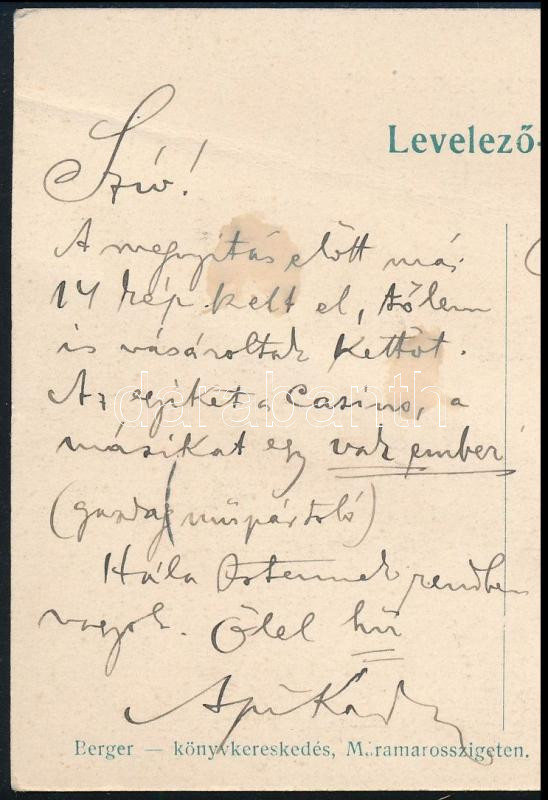 Levelező-
Szív!
A megnyitás előtt már
14 kép kelt el, tőlem
is vásároltak kettőt.
Az egyiket a Casino, a
másikat egy vak ember
(gazdag műpártoló)
Hála Istennek rendben
vagyok. Ölel hű
darabanth
Berger — könyvkereskedés, Máramarosszigeten.